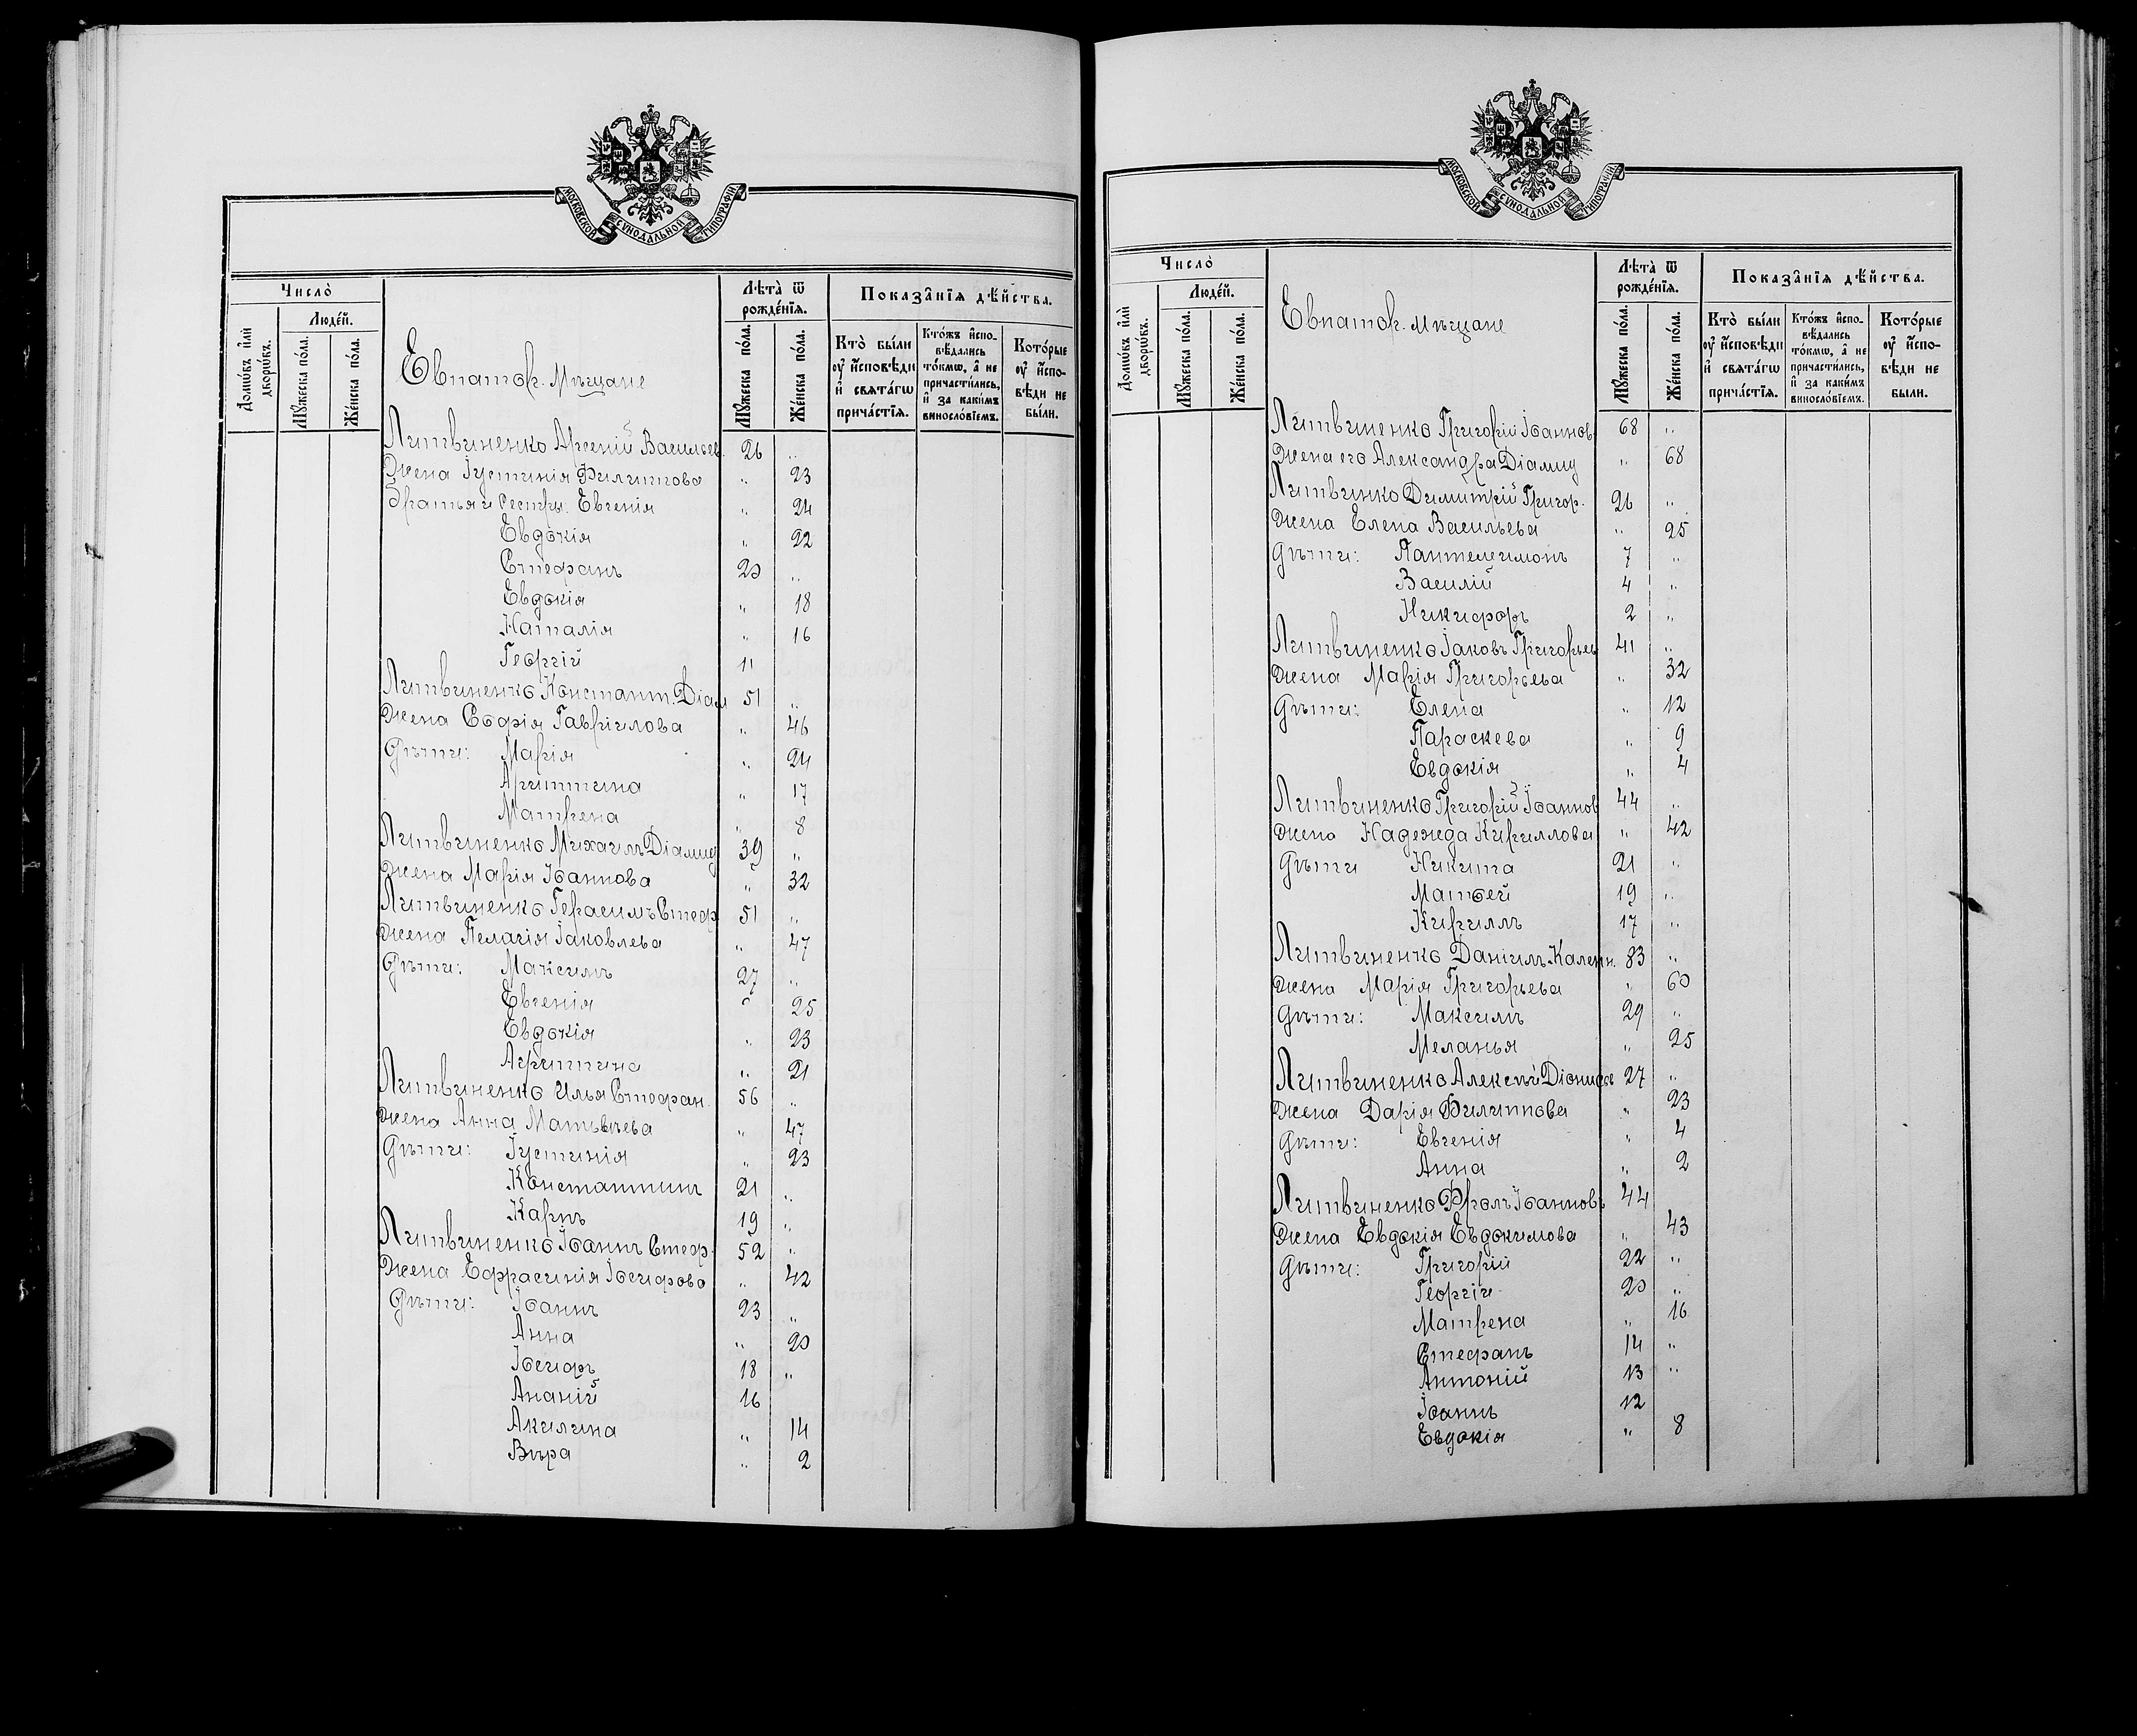 МОСКОВСКОЙ СУНОДАЛЬНОЙ ТИПОГРАФІИ
Число̀
Домѡ́въ и҆лѝ дворѡ́въ.
Люде́й.
Мꙋ́жеска по́ла.
Же́нска по́ла.
Лѣ́та ѿ рожде́нїѧ.
Мꙋ́жеска по́ла.
Же́нска по́ла.
Показа̑нїѧ дѣ́йства.
Кто̀ бы́ли оу҆ и҆́сповѣди и҆ свѧта́гѡ прича́стїѧ.
Кто́жъ и҆спо-вѣ́дались то́кмѡ, а҆ не причасти́лись, и҆ за каки́мъ виносло́вїемъ.
Кото́рые оу҆ и҆́спо-вѣди не бы́ли.
Евпатор. Мѣщане
Литвиненко Арсеній Васильев. 26 „
Жена Іустинія Филиппова „ 23
Братья и Сестры: Евгенія „ 24
Евдокія „ 22
Стефанъ 20 „
Евдокія „ 18
Наталія „ 16
Георгій 11
Литвиненко Констант. Діам 51 „
Жена Софія Гавріилова „ 46
Дѣти: Марія „ 24
Агриппина „ 17
Матрена „ 8
Литвиненко Михаилъ Діамид 39 „
Жена Марія Іоаннова „ 32
Литвиненко Герасимъ Стеф 51 „
Жена Пелагія Іаковлева „ 47
Дѣти: Максимъ 27 „
Евгенія „ 25
Евдокія „ 23
Агриппина „ 21
Литвиненко Илья Стефан. 56 „
Жена Анна Матвѣева „ 47
Дѣти: Іустинія „ 23
Константинъ 21 „
Карпъ 19 „
Литвиненко Іоаннъ Стеф. 52 „
Жена Ефрасинія Іосифова „ 42
Дѣти: Іоаннъ 23 „
Анна „ 20
Іосифъ 18 „
Ананій 16
Акилина „ 14
Вѣра „ 2
МОСКОВСКОЙ СУНОДАЛЬНОЙ ТИПОГРАФІИ
Число̀
Домѡ́въ и҆лѝ дворѡ́въ.
Люде́й.
Мꙋ́жеска по́ла.
Же́нска по́ла.
Лѣ́та ѿ рожде́нїѧ.
Мꙋ́жеска по́ла.
Же́нска по́ла.
Показа̑нїѧ дѣ́йства.
Кто̀ бы́ли оу҆ и҆́сповѣди и҆ свѧта́гѡ прича́стїѧ.
Кто́жъ и҆спо-вѣ́дались то́кмѡ, а҆ не причасти́лись, и҆ за каки́мъ виносло́вїемъ.
Кото́рые оу҆ и҆́спо-вѣди не бы́ли.
Евпатор. мѣщане
Литвиненко Григорій Іоаннов. 68 „
Жена его Александра Діамид „ 68
Литвинко Димитрій Григор. 26 „
Жена Елена Васильева „ 25
Дѣти: Пантелеимонъ 7 „
Василій 4 „
Никифоръ 2 „
Литвиненко Іаковъ Григорьев 41 „
Жена Марія Григорьева „ 32
Дѣти: Елена „ 12
Параскева „ 9
Евдокія „ 4
Литвиненко Григорій Іоаннов 44 „
Жена Надежда Кириллова „ 42
Дѣти Никита 21 „
Матѳей 19 „
Кириллъ 17 „
Литвиненко Даніилъ Каленн. 83 „
Жена Марія Григорьева „ 60
Дѣти: Максимъ 29 „
Меланья „ 25
Литвиненко Алексѣй Діонис 27 „
Жена Дарія Филиппова „ 23
Дѣти: Евгенія „ 4
Анна „ 2
Литвиненко Фролъ Іоанновъ 44
Жена Евдокія Евдокимова „ 43
Дѣти: Григорій 22 „
Георгій 20 „
Матрена „ 16
Стефанъ 14 „
Антоній 13 „
Іоаннъ 12
Евдокія „ 8